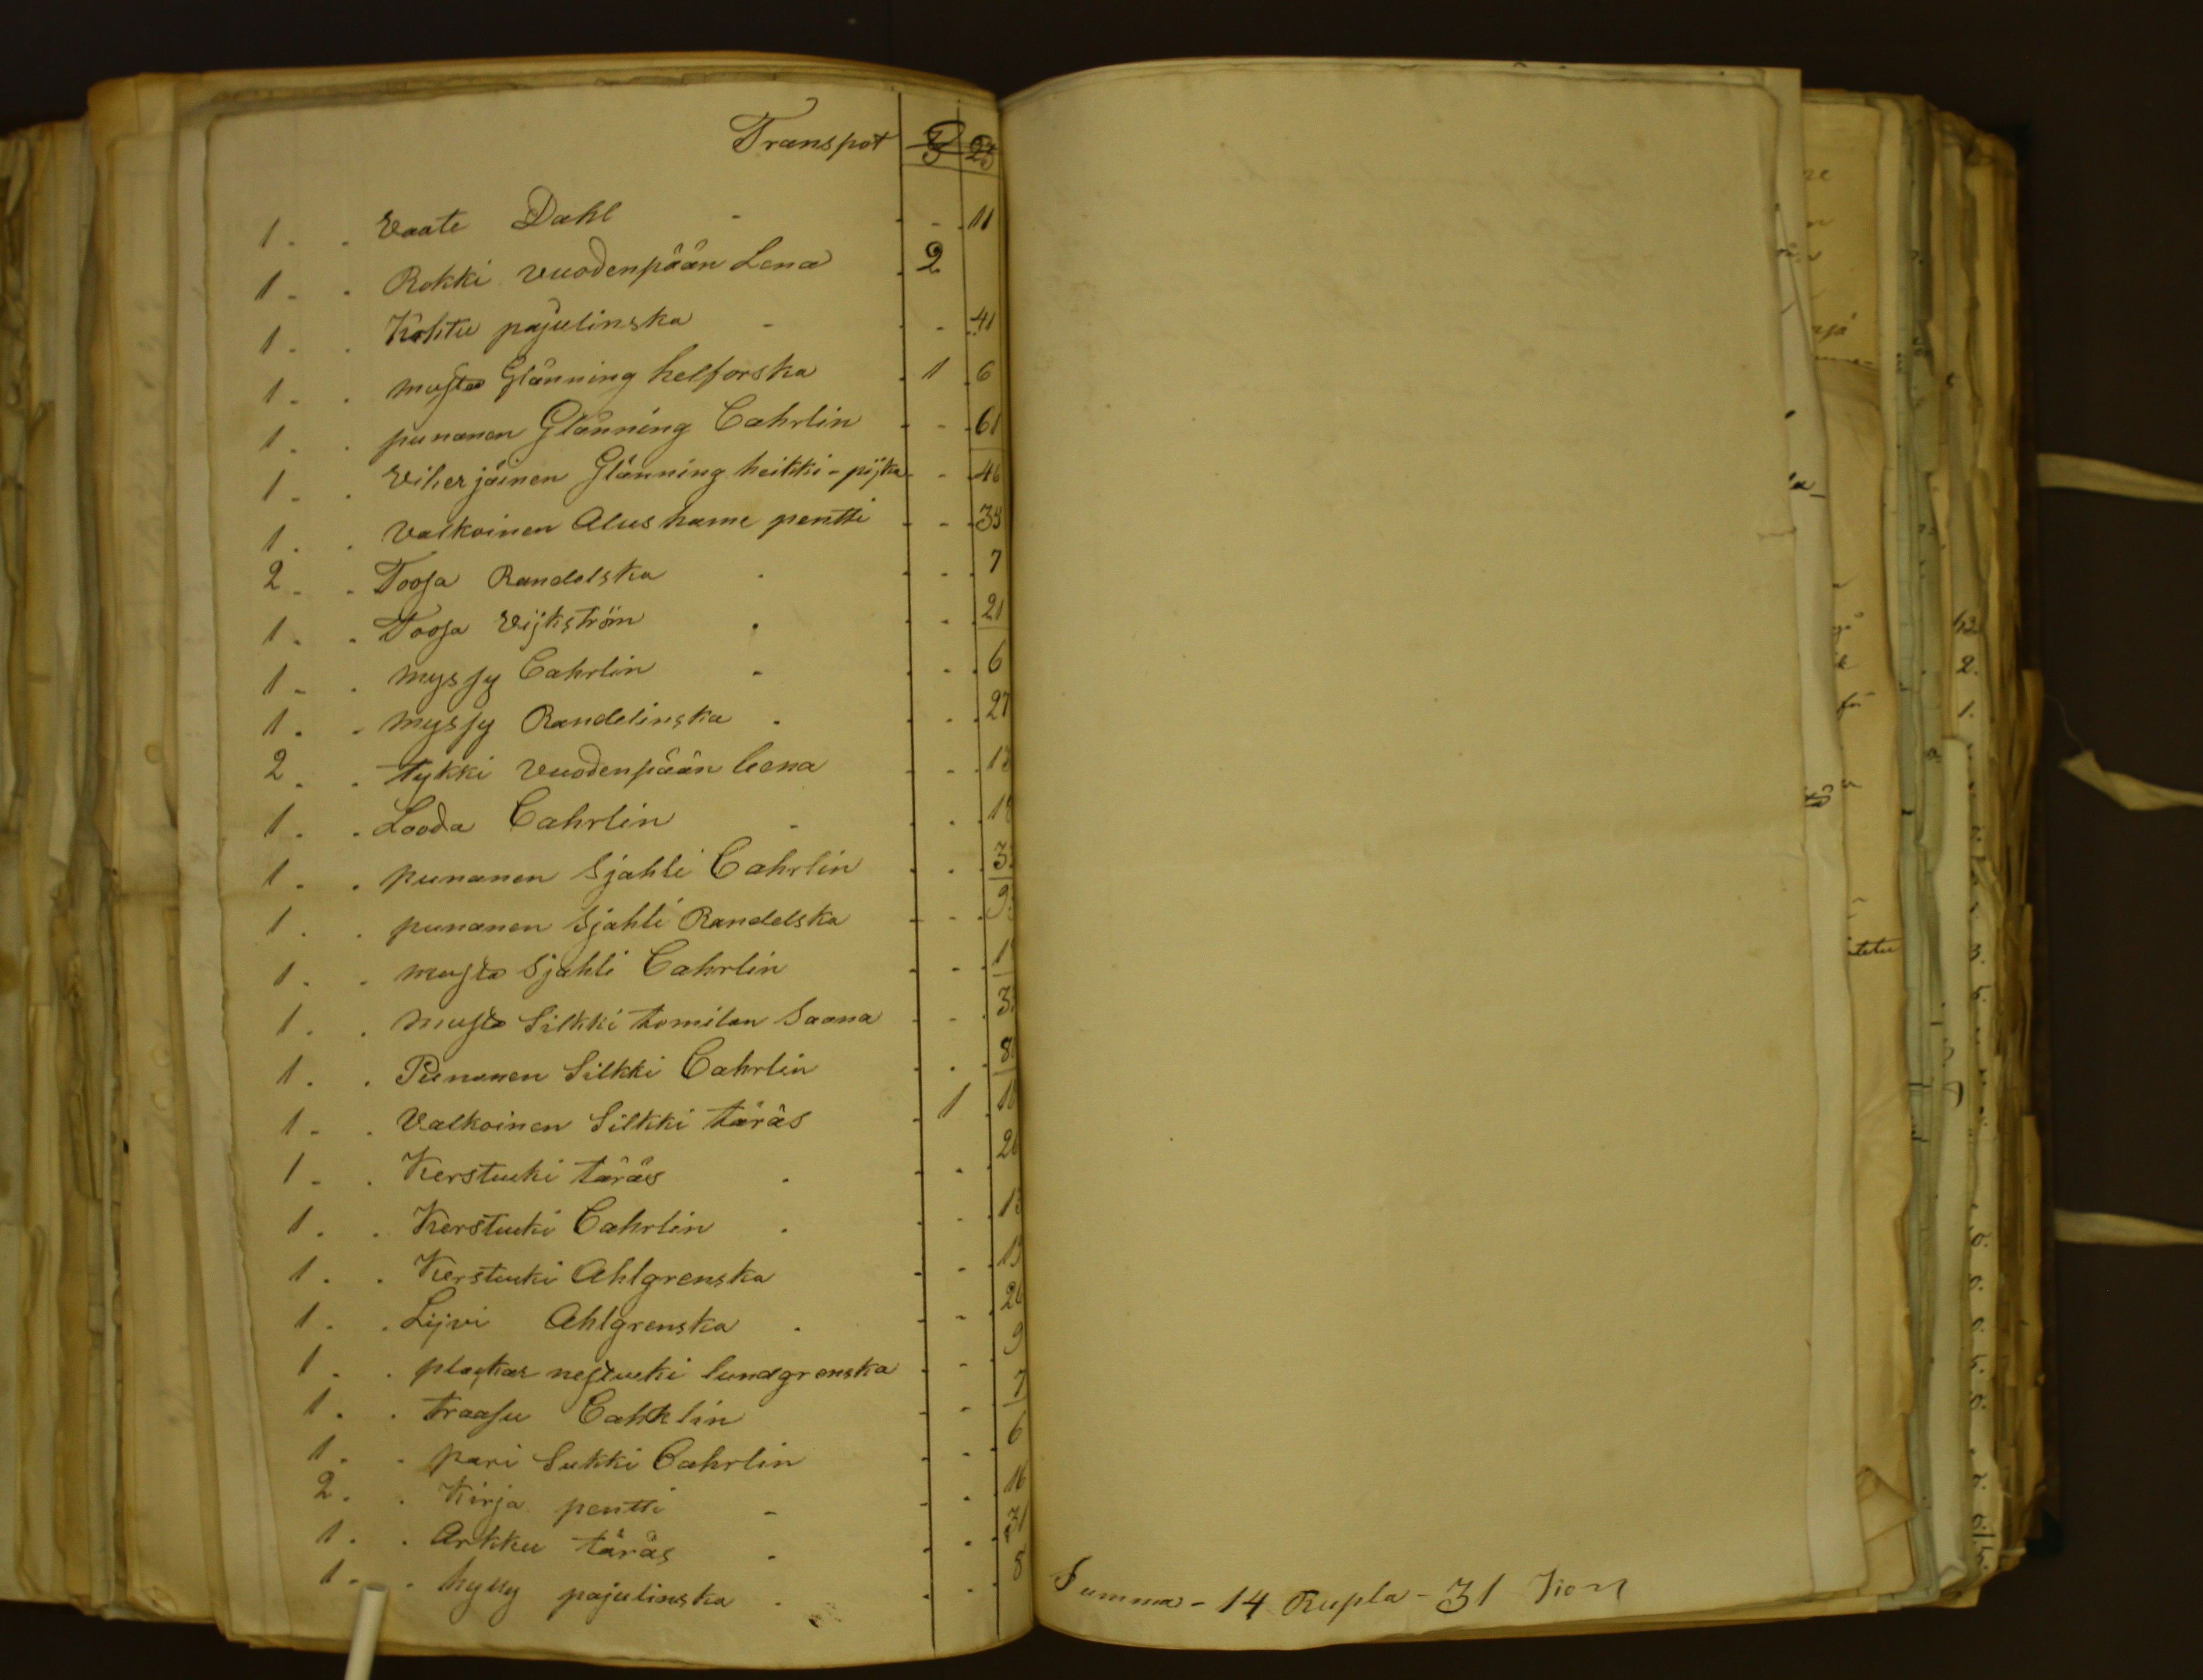 Transpot 23
1 - - Vaate Dahl - - - 11
1 - - Rokki vuodenpään Lena - 2
1 - - Kohtu pajulinska - - - 41
1 - - musta Glänning helsforska - 1 6
1 - - punanen Glänning Cahrlin - - - 61
1 - - Viherjäinen Glänning heikki-pijka - - 46
1 - - Valkoinen Alushame pentti - - - 35
2 - - Toosa Randelska - - - - 7
1 - - Toosa Vijkström - - - - 21
1 - - myssy Cahrlin - - - - 6
1 - - myssy Randelinska - - - - 27
2 - - tykki vuodenpään leena - - - 13
1 - - Looda Cahrlin - - - 18
1 - - punanen Sjahli Cahrlin - - - 3
1 - - punanen Sjahli Randelska - - - 9
1 - - musta Sjahli Cahrlin - - - 1
1 - - musta Silkki tomilan Saana - - - 3
1 - - Punanen Silkki Cahrlin - - - 8
1 - - Valkoinen Silkki täräs - 1 - 10
1 - - Kerstuuki täräs - - - 20
1 - - Kerstuuki Cahrlin - - - - 13
1 - - Kerstuuki Ahlgrenska - - - 15
1 - - Lijvi Ahlgrenska - - - - 26
1 - - nestuuki lundgrenska - - - 9
1 - - traasu Cahrlin - - - 7
1 - - pari Sukki Cahrlin - - - 6
2 - - Kirja pentti - - - - 16
1 - - Arkku täräs - - - - 31
1 - - hylly pajulinska - - - - 8
Summa - 14 Rupla - 31